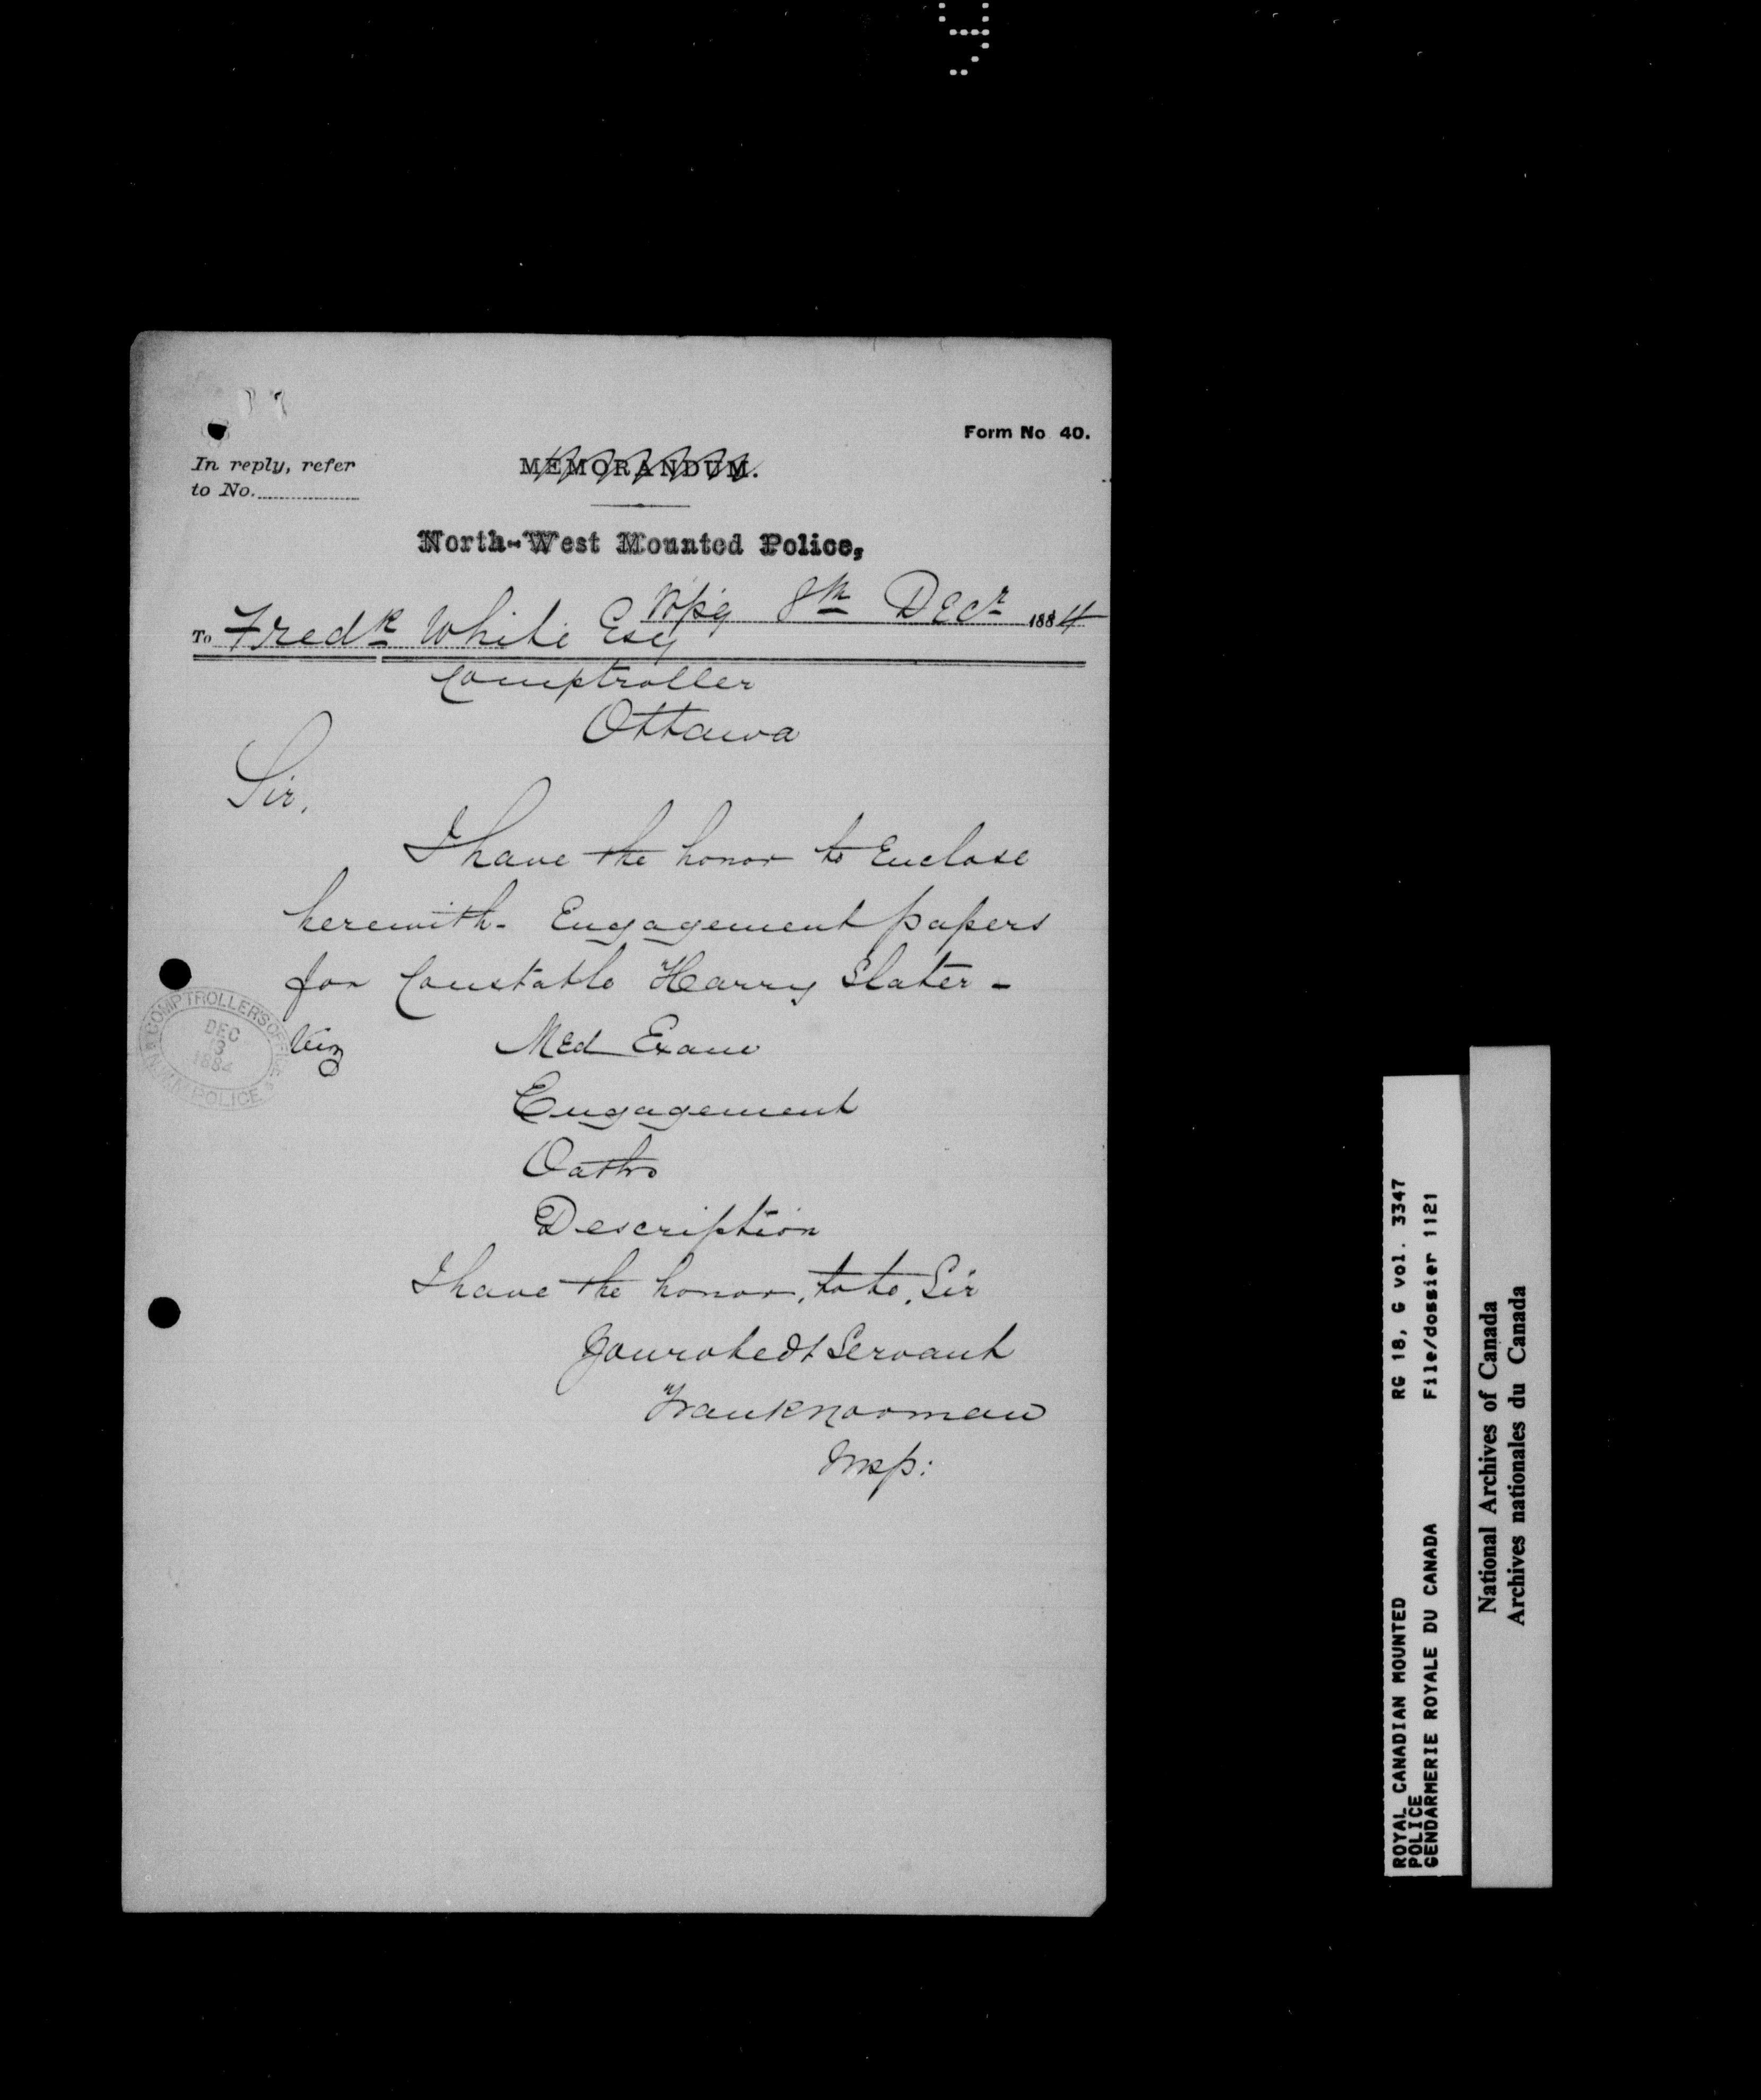 Form No 40.
In reply, refer
to No.
MEMORANDUM.
North-West Mounted Police,
Wpg 8th Decr 1884
To Fredk White Esq
Comptroller
Ottawa
Sir,
I have the honor to Enclose
herewith- Engagement papers
for Constable Harry Slater -
Viz Med Exam
Engagement
Oaths
Description
I have the honor, to be, Sir
Your obedt Servant
Frank Norman
Insp:
COMPTROLLER'S OFFICE
DEC
1884
N.W.M. POLICE
ROYAL CANADIAN MOUNTED RG 18, G vol. 3347
POLICE
GENDARMERIE ROYALE DU CANADA File/dossier 1121
National Archives of Canada
Archives nationales du Canada